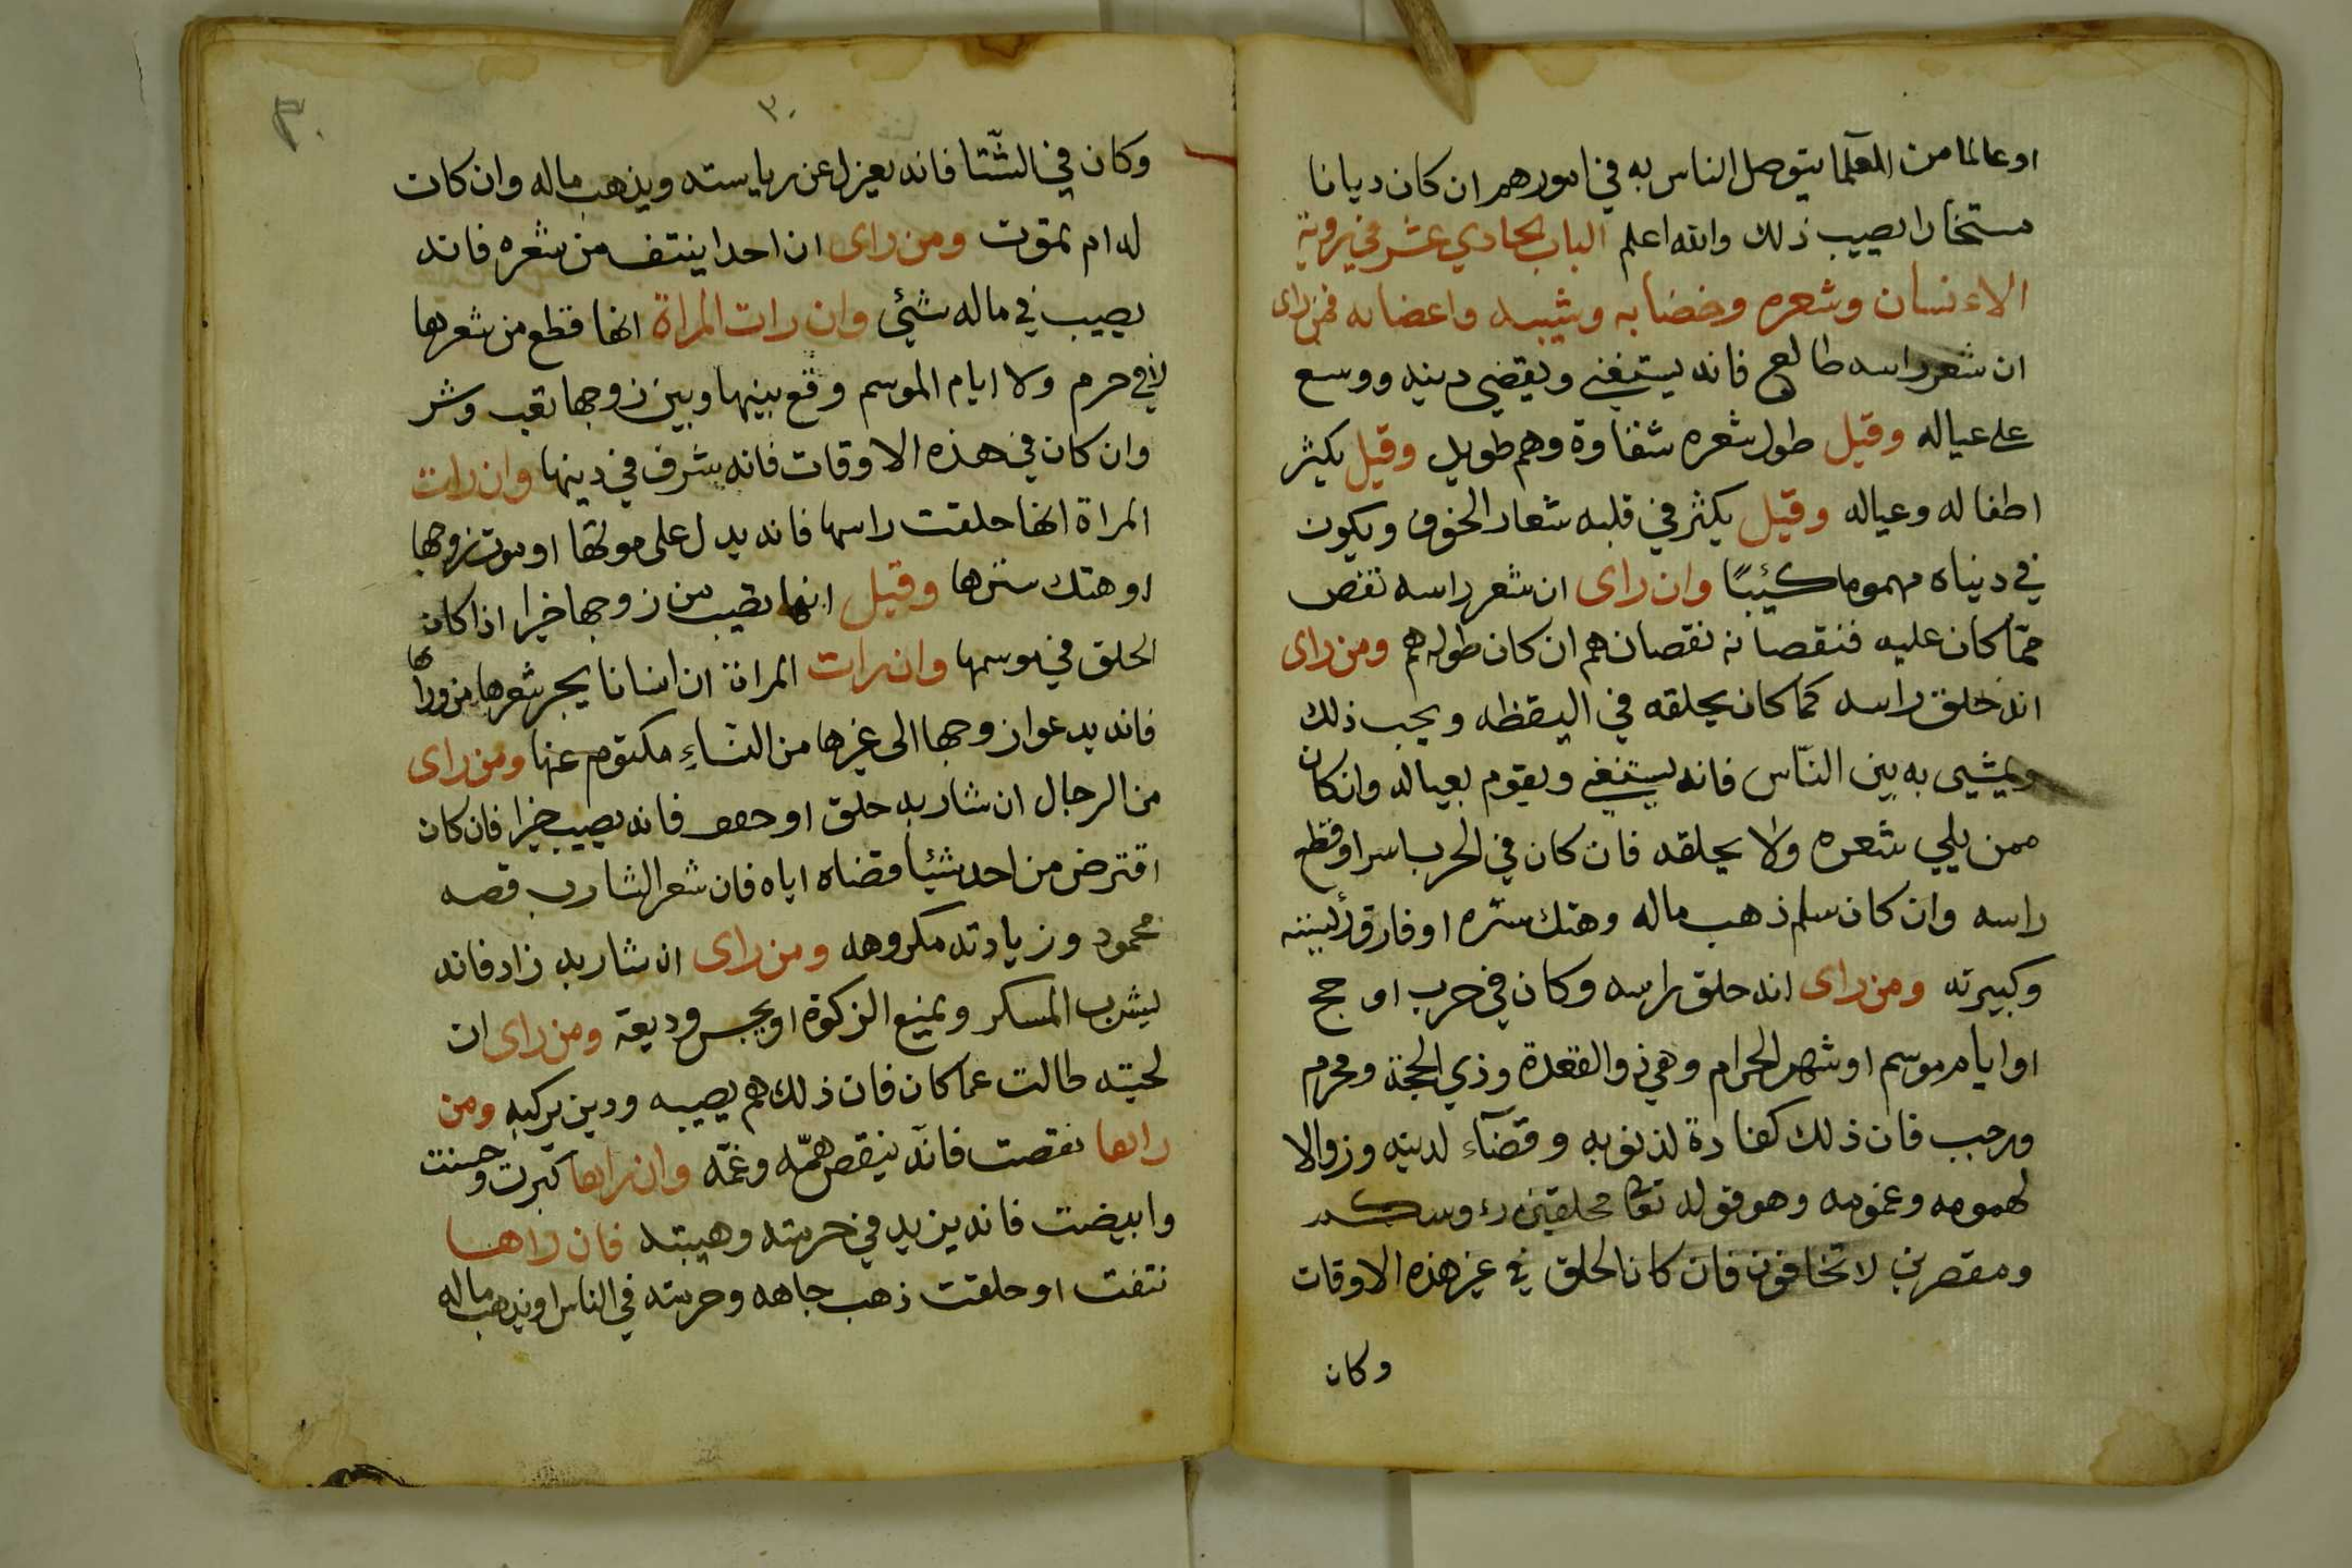 او عالما من العلما يتوصل الناس به في امورهم ان كان ديانا
مستخارا يصيب ذلك والله اعلم الباب الحادي عشر في روية
الاءنسان وشعره وخضابه وشيبه واعضايه فمن راى
ان شعر راسه طالع فانه يستغني ويقضي دينه ووسع
على عياله وقيل طول شعره شقاوة وهم طويل وقيل يكثر
اطفاله وعياله وقيل يكثر في قلبه شعار الخوف ويكون
في دنياه مهموما كئيبًا وان راى ان شعر راسه نقص
عمّا كان عليه فنقصانه نقصان هم ان كان طوله هم ومن راى
انه حلق راسه كما كان يحلقه في اليقظه ويجب ذلك
ويمشي به بين النّاس فانه يستغني ويقوم بعياله وان كان
ممن يلي شعره ولا يحلقه فان كان في الحرب اسر او قطع
راسه وان كان سلم ذهب ماله وهتك ستره او فارق رئيسه
وكبيرته ومن راى انه حلق راسه وكان في حرب او حج
او ايام موسم او شهر الحرام وهي ذوالقعدة وذي الحجة ومحرم
ورجب فان ذلك كفارة لذنوبه وقضآء لدينه وزوالا
لهمومه وغمومه وهو قوله تعا محلقين رءوسكم
ومقصرين لا تخافون فان كان الحلق في غير هذه الاوقات
وكان
٣٠
٣٠
وكان في الشّتا فانه يعزل عن رياسته ويذهب ماله وان كان
له ام تموت ومن راى ان احدا ينتف من شعره فانه
يصيب في ماله شئي وان رات المراة انها قطع من شعرها
لا في حرم ولا ايام الموسم وقع بينها وبين زوجها تعب وشر
وان كان في هذه الاوقات فانه شرف في دينها وان رات
المراة انها حلقت راسها فانه يدل على موتها او موت زوجها
او هتك سترها وقيل انها تصيب من زوجها خيرا اذا كان
الحلق في موسمها وان رات المراة ان انسانا يجر شعرها من وراها
فانه يدعوا زوجها الى غيرها من النسّاءِ مكتوم عنها ومن راى
من الرجال ان شاربه حلق او حفف فانه يصيب خيرا فان كان
اقترض من احد شيئا قضاه اياه فان شعر الشارب قصه
محمود وزيادته مكروهه ومن راى ان شاربه زاد فانه
يشرب المسكر ويمنع الزكوة او يحبس وديعة ومن راى ان
لحيته طالت عما كان فان ذلك هم يصيبه ودين يركبه ومن
راها نقصت فانّه ينقص همّه وغمّه وان راها كبرت وحسنت
وابيضت فانه يزيد في حرمته وهيبته فان راها
نتفت او حلقت ذهب جاهه وحرمته في الناس او يذهب ماله